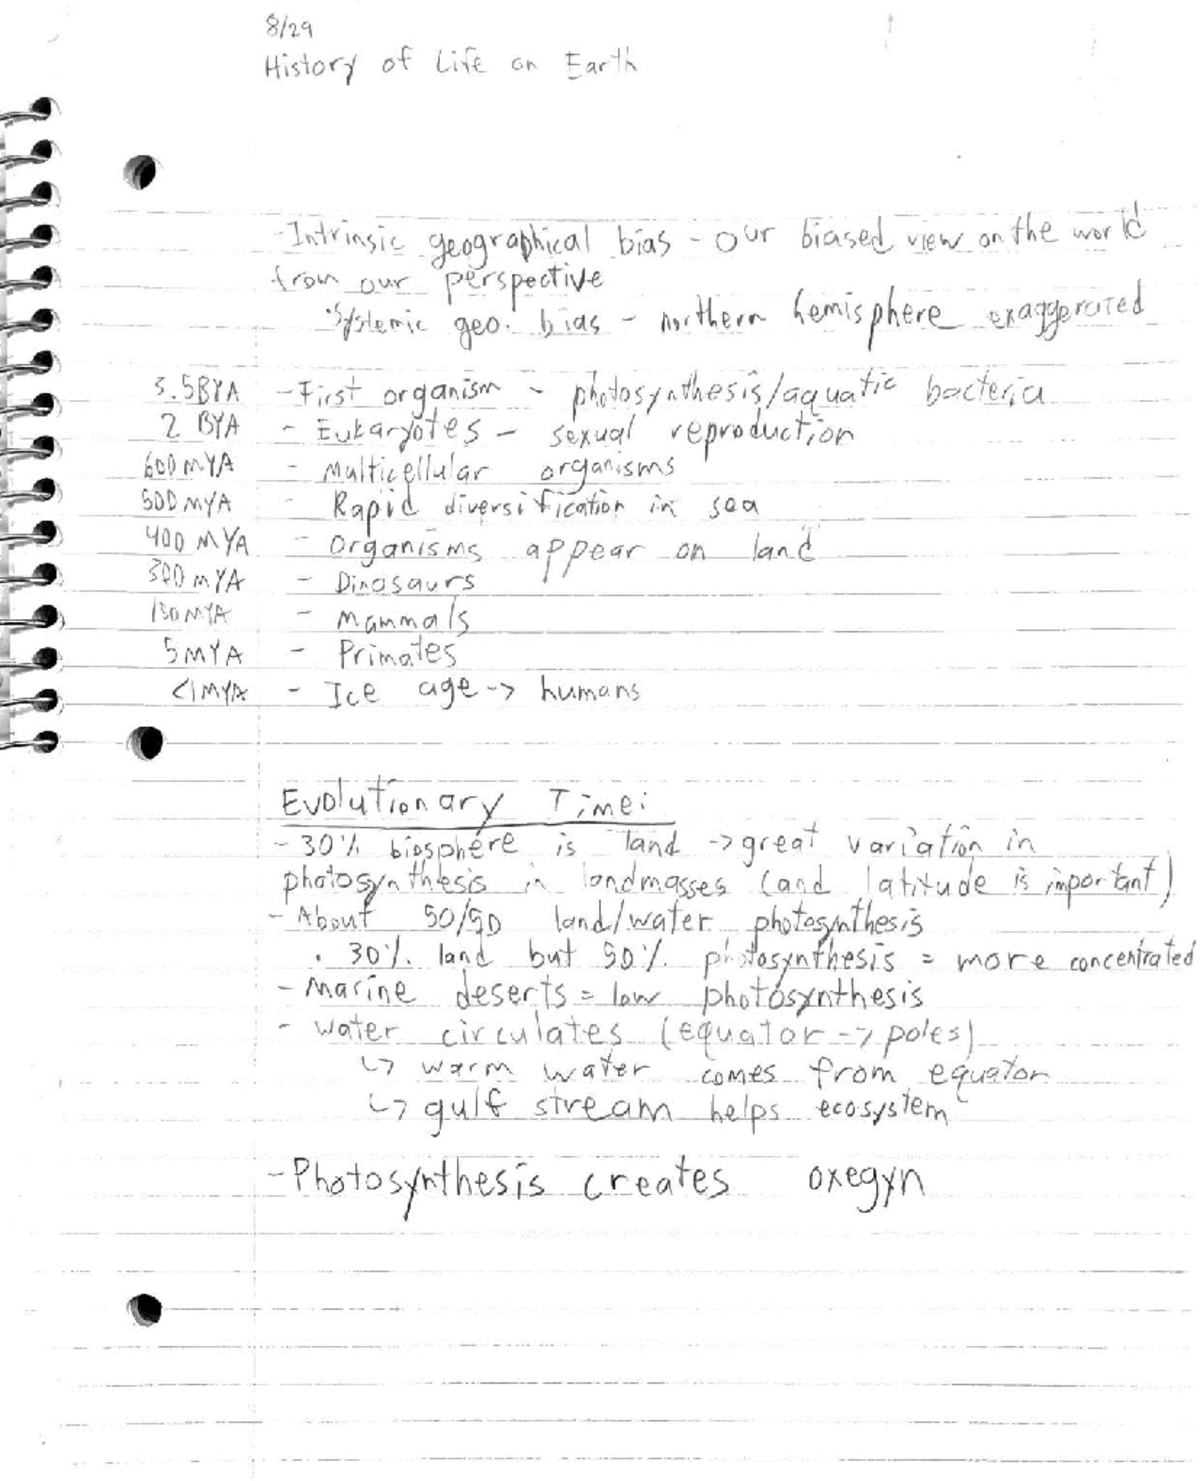 8/29
History of Life on Earth
-Intrinsic geographical bias - our biased view on the world
from our perspective
·Systemic geo. bias - northern hemisphere exaggerated
3.5BYA -First organism - photosynthesis/aquatic bacteria
2 BYA - Eukaryotes - sexual reproduction
600 MYA - Multicellular organisms
500 MYA - Rapid diversification in sea
400 MYA - Organisms appear on land
300 MYA - Dinosaurs
130 MYA - Mammals
5 MYA - Primates
<1 MYA - Ice age -> humans
Evolutionary Time:
- 30% biosphere is land -> great variation in
photosynthesis in landmasses (and latitude is important)
- About 50/50 land/water photosynthesis
· 30% land but 50% photosynthesis = more concentrated
- Marine deserts = low photosynthesis
- Water circulates (equator -> poles)
↳ warm water comes from equator
↳ gulf stream helps ecosystem
-Photosynthesis creates oxegyn